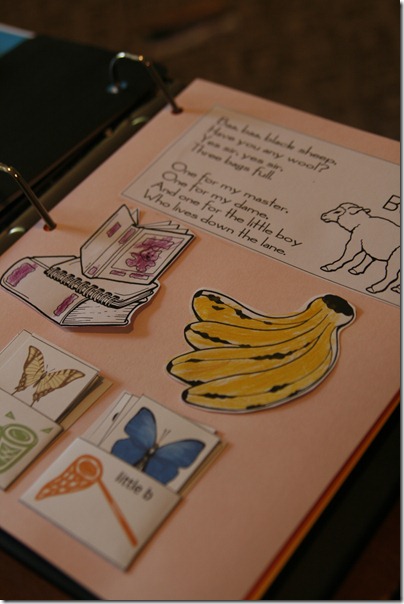 Baa, baa, black sheep,
Have you any wool?
Yes sir, yes sir,
Three bags full.
One for my master,
One for my dame,
And one for the little boy
Who lives down the lane.
B
little b